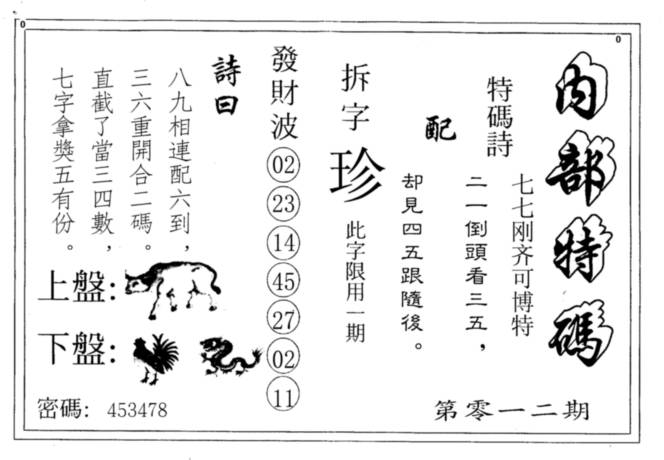 內部特碼
特碼詩
七七刚齐可博特
二一倒頭看三五，
配
却見四五跟隨後。
拆字
珍
此字限用一期
發財波
02
23
14
45
27
02
11
詩曰
八九相連配六到，
三六重開合二碼。
直截了當三四數，
七字拿獎五有份。
上盤：
下盤：
密碼：453478
第零一二期